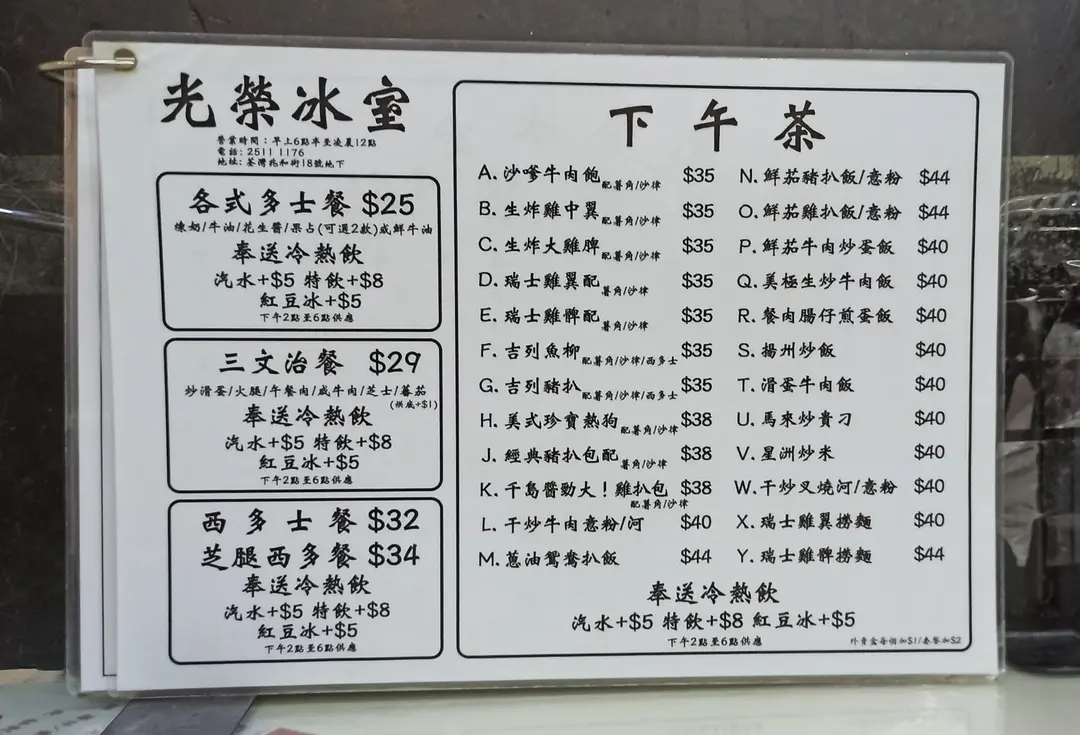 光榮冰室
營業時間：早上6點半至凌晨12點
電話：2511 1176
地址：荃灣兆和街18號地下
各式多士餐 $25
煉奶/牛油/花生醬/果占(可選2款)或鮮牛油
奉送冷熱飲
汽水+$5 特飲+$8
紅豆冰+$5
下午2點至6點供應
三文治餐 $29
炒滑蛋/火腿/午餐肉/咸牛肉/芝士/蕃茄
(烘底+$1)
奉送冷熱飲
汽水+$5 特飲+$8
紅豆冰+$5
下午2點至6點供應
西多士餐 $32
芝腿西多餐 $34
奉送冷熱飲
汽水+$5 特飲+$8
紅豆冰+$5
下午2點至6點供應
下午茶
A. 沙嗲牛肉飽 配薯角/沙律 $35
B. 生炸雞中翼 配薯角/沙律 $35
C. 生炸大雞脾 配薯角/沙律 $35
D. 瑞士雞翼配 薯角/沙律 $35
E. 瑞士雞髀配 薯角/沙律 $35
F. 吉列魚柳 配薯角/沙律/西多士 $35
G. 吉列豬扒 配薯角/沙律/西多士 $35
H. 美式珍寶熱狗 配薯角/沙律 $38
J. 經典豬扒包配 薯角/沙律 $38
K. 千島醬勁大！雞扒包 $38
配薯角/沙律
L. 干炒牛肉意粉/河 $40
M. 蔥油鴛鴦扒飯 $44
N. 鮮茄豬扒飯/意粉 $44
O. 鮮茄雞扒飯/意粉 $44
P. 鮮茄牛肉炒蛋飯 $40
Q. 美極生炒牛肉飯 $40
R. 餐肉腸仔煎蛋飯 $40
S. 揚州炒飯 $40
T. 滑蛋牛肉飯 $40
U. 馬來炒貴刁 $40
V. 星洲炒米 $40
W. 干炒叉燒河/意粉 $40
X. 瑞士雞翼撈麵 $40
Y. 瑞士雞髀撈麵 $44
奉送冷熱飲
汽水+$5 特飲+$8 紅豆冰+$5
下午2點至6點供應
外賣盒每個加$1/套餐加$2